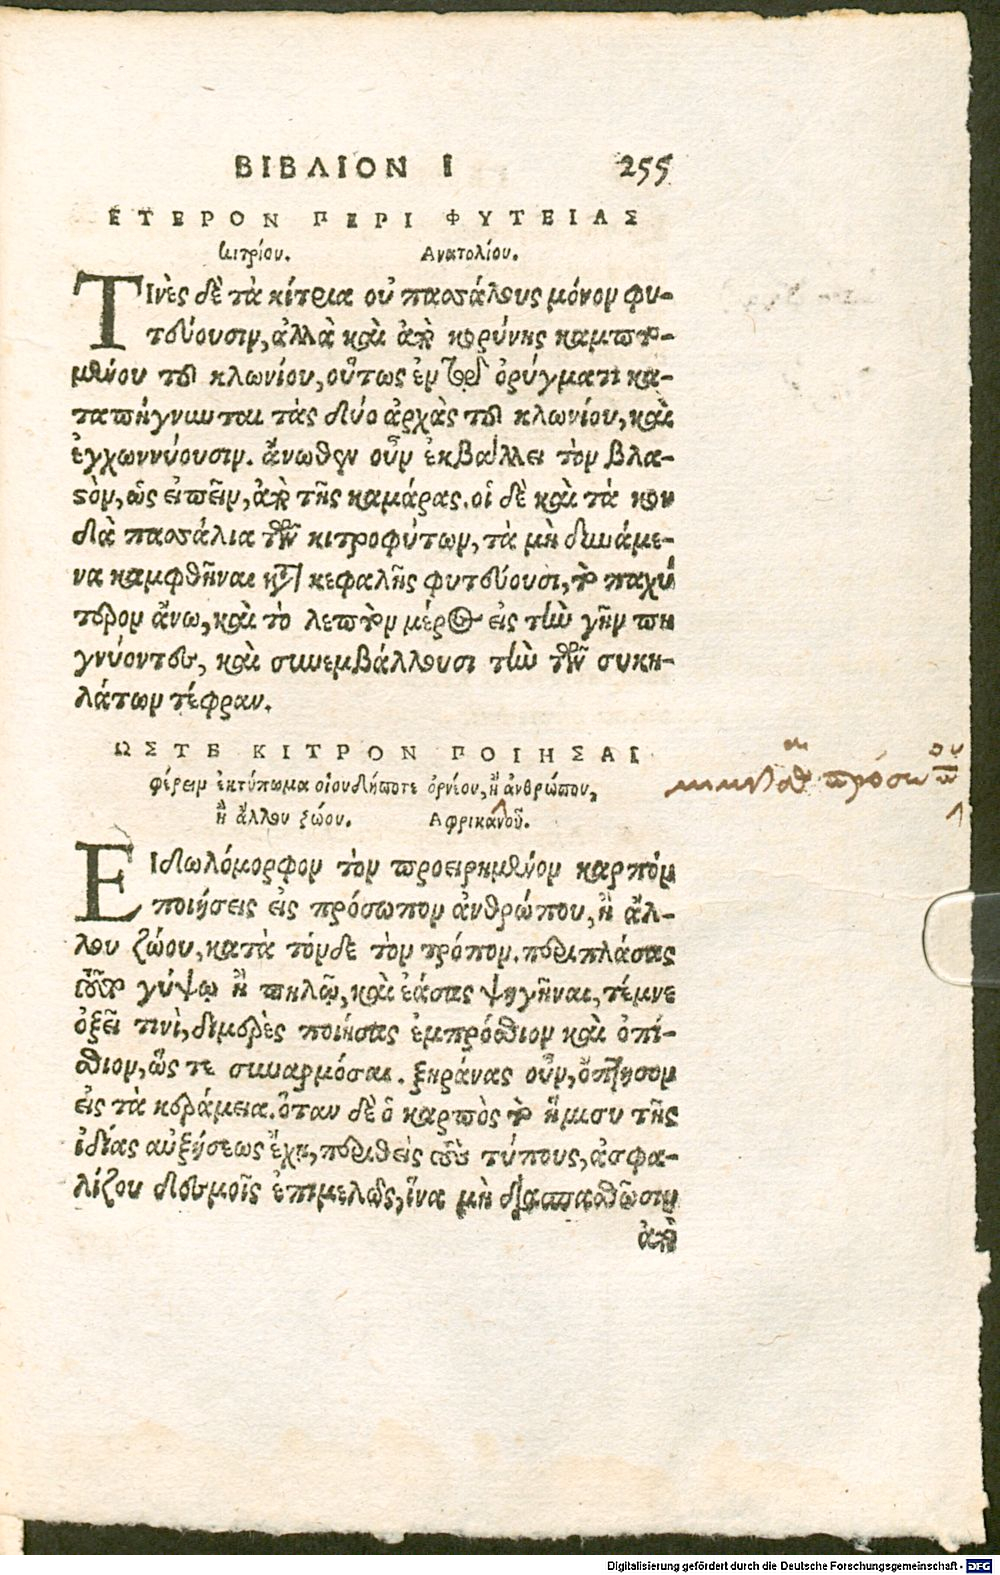 ΒΙΒΛΙΟΝ Ι 255
ΕΤΕΡΟΝ ΠΕΡΙ ΦΥΤΕΙΑΣ
κιτρίου. Ανατολίου.
ΤΙνὲς δὲ τὰ κίτρια οὐ πασσάλους μόνον φυ-
τεύουσιν, ἀλλὰ καὶ ἀπὸ κορύνης καμπτο-
μένου τοῦ κλωνίου, οὕτως ἐν τῷ ὀρύγματι κα-
ταπήγνυνται τὰς δύο ἀρχὰς τοῦ κλωνίου, καὶ
ἐγχωννύουσιν. ἄνωθεν οὖν ἐκβάλλει τὸν βλα-
στὸν, ὡς εἰπεῖν, ἀπὸ τῆς καμάρας. οἱ δὲ καὶ τὰ κον
δὰ πασσάλια τῶν κιτροφύτων, τὰ μὴ δυνάμε-
να καμφθῆναι κατὰ κεφαλῆς φυτεύουσι, τὸ παχύ
τερον ἄνω, καὶ τὸ λεπτὸν μέρος εἰς τὴν γῆν πη
γνύοντες, καὶ συνεμβάλλουσι τὴν τῶν συκη-
λάτων τέφραν.
ΩΣΤΕ ΚΙΤΡΟΝ ΠΟΙΗΣΑΙ
φέρειν ἐκτύπωμα οἱουδήποτε ὀρνέου, ἢ ἀνθρώπου,
ἢ ἄλλου ζώου. Αφρικανοῦ.
πρόσω
ΕΙδωλόμορφον τὸν προειρημένον καρπὸν
ποιήσεις εἰς πρόσωπον ἀνθρώπου, ἢ ἄλ-
λου ζώου, κατὰ τόνδε τὸν τρόπον. περιπλάσας
γύψῳ ἢ πηλῷ, καὶ ἐάσας ψυγῆναι, τέμνε
ὀξεῖ τινὶ, διμερὲς ποιήσας ἐμπρόσθιον καὶ ὀπί-
σθιον, ὥς τε συναρμόσαι. ξηράνας οὖν, ὄπτησον
εἰς τὰ κεράμεια. ὅταν δὲ ὁ καρπὸς τὸ ἥμισυ τῆς
ἰδίας αὐξήσεως ἔχῃ, περιθεὶς τοὺς τύπους, ἀσφα-
λίζου δεσμοῖς ἐπιμελῶς, ἵνα μὴ διασπασθῶσιν
ἀπὸ
Digitalisierung gefördert durch die Deutsche Forschungsgemeinschaft - DFG